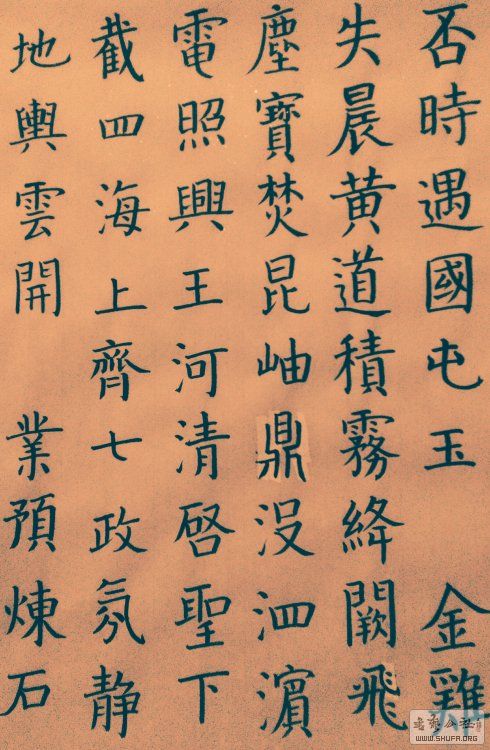 否時遇國屯玉 金雞
失晨黄道積霧絳闕飛
塵寶焚昆岫鼎没泗濱
電照興王河清啓聖下
截四海上齊七政氛静
地輿雲開 業預煉石
WWW.SHUFA.ORG